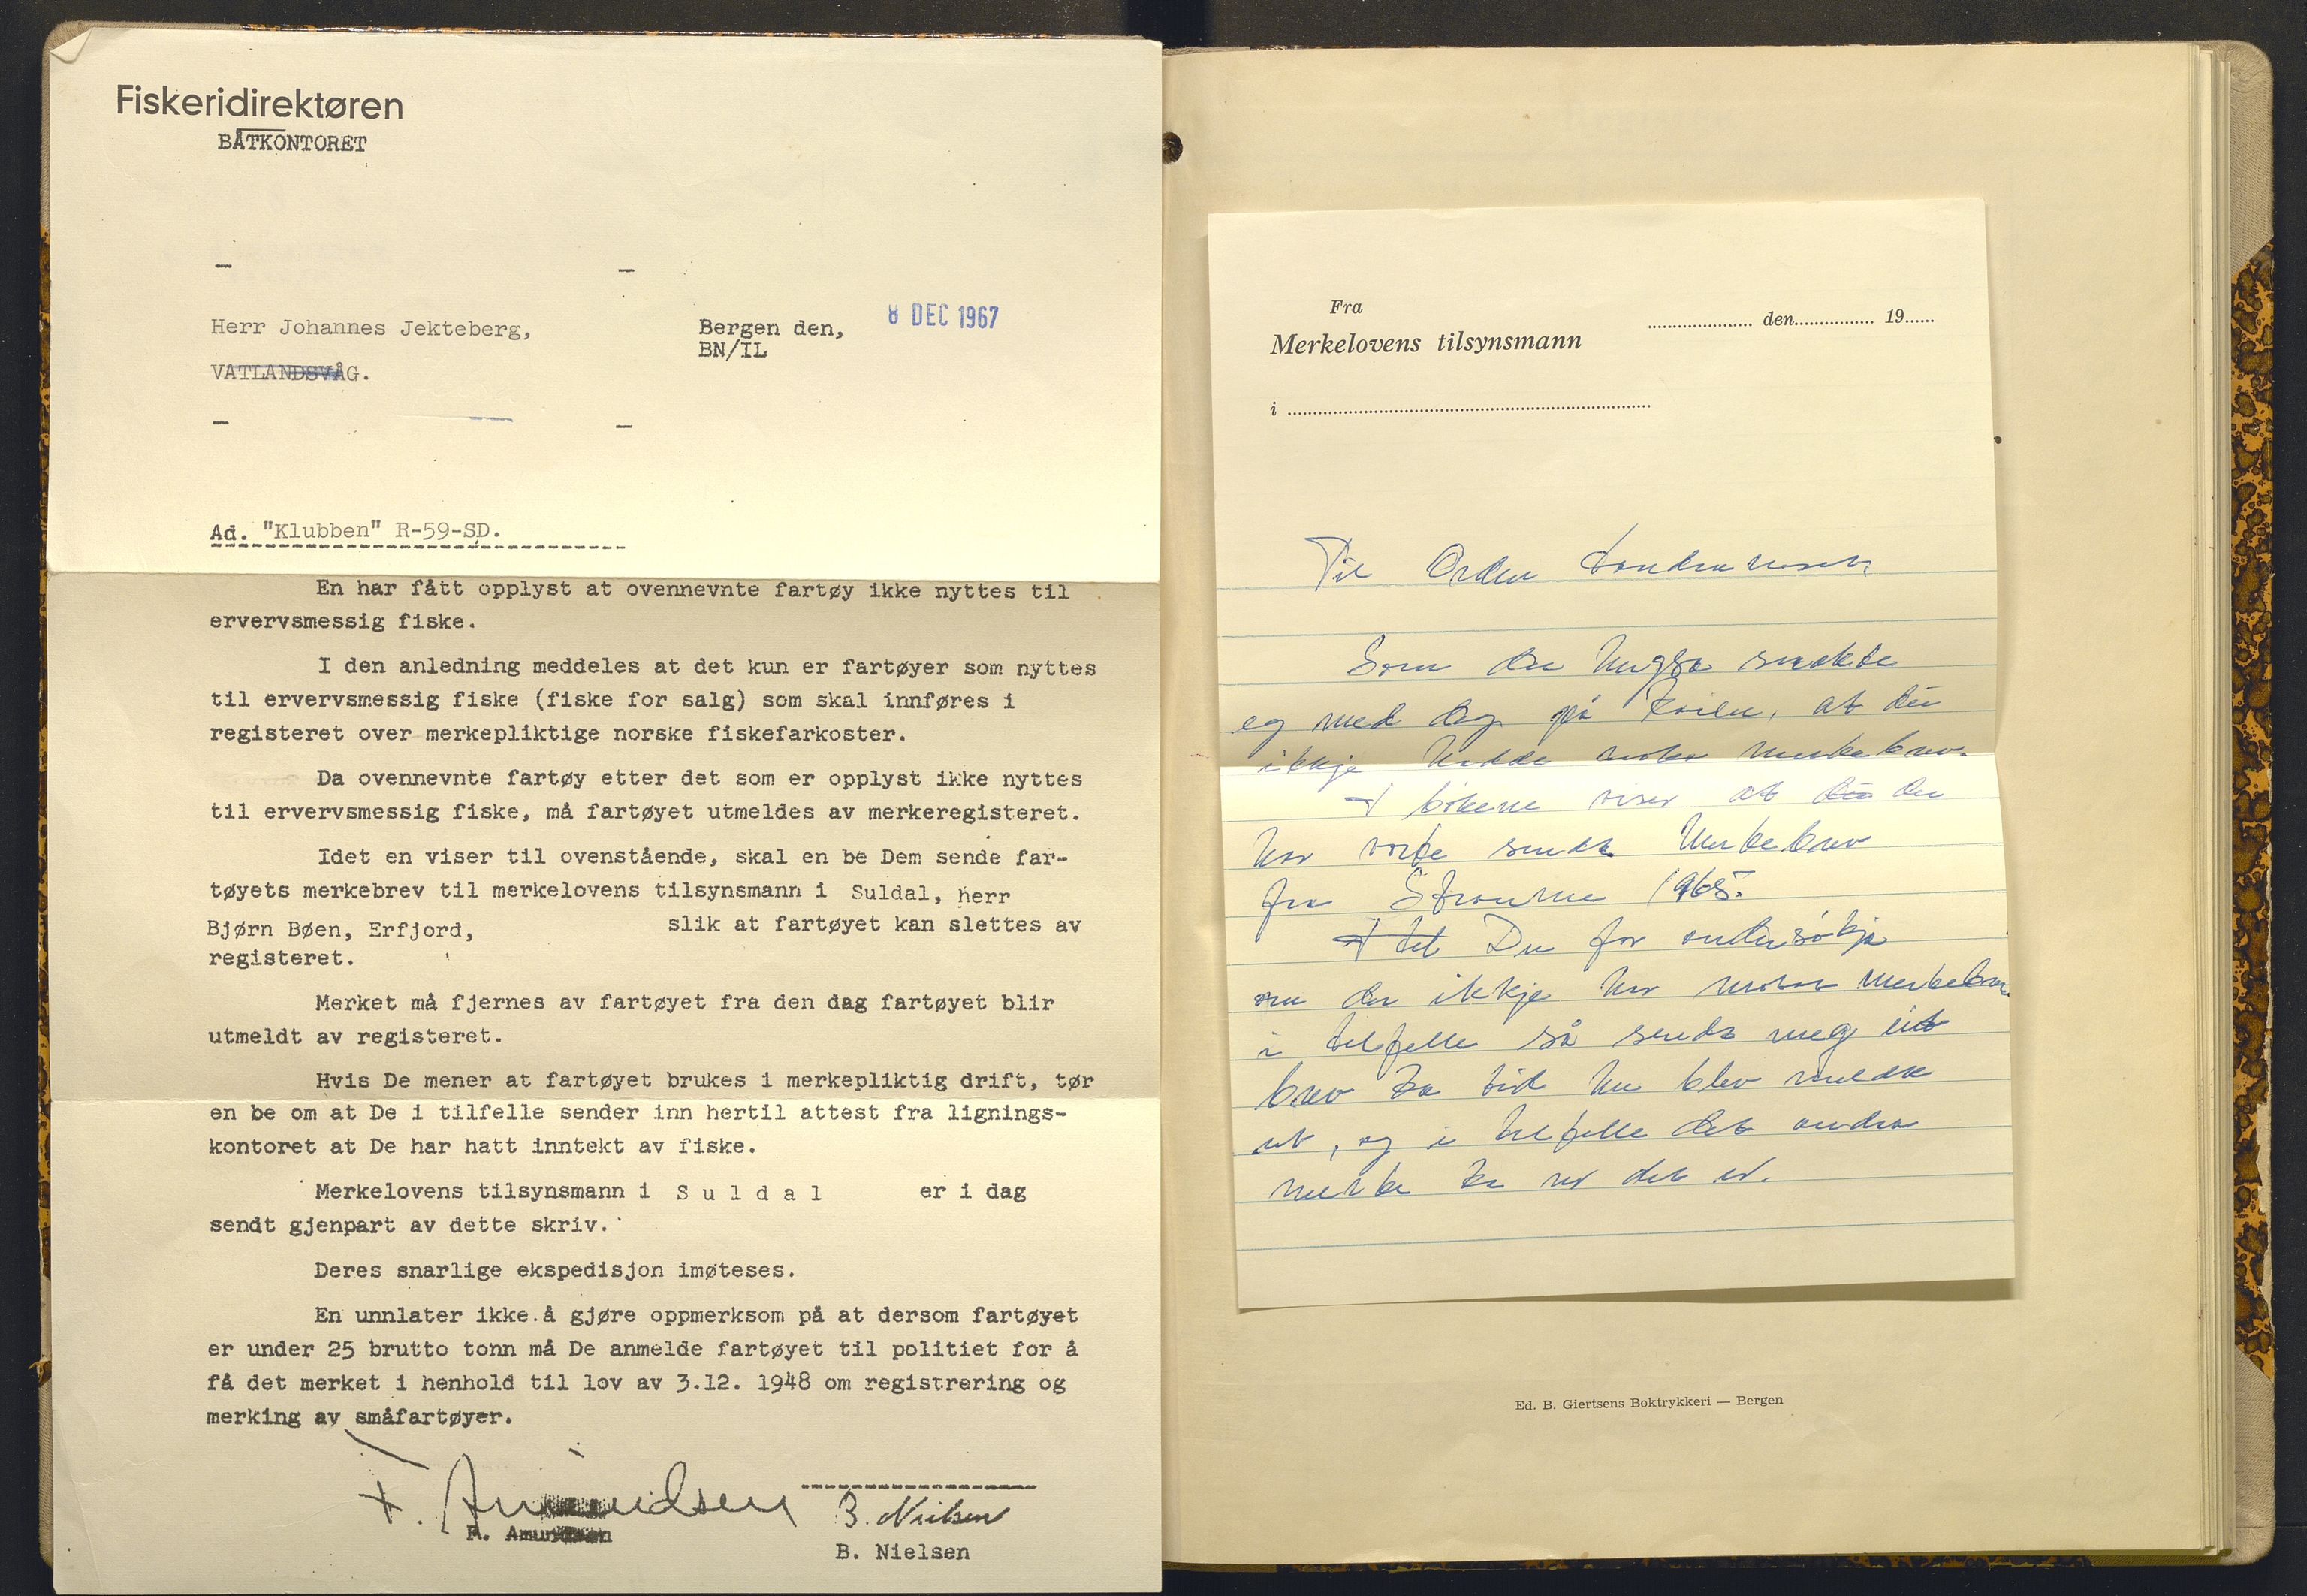 Fiskeridirektøren
BÅTKONTORET
Herr Johannes Jekteberg,
VATLANDSVÅG.
Bergen den, 8 DEC 1967
BN/IL
Ad. "Klubben" R-59-SD.
En har fått opplyst at ovennevnte fartøy ikke nyttes til
ervervsmessig fiske.
I den anledning meddeles at det kun er fartøyer som nyttes
til ervervsmessig fiske (fiske for salg) som skal innføres i
registeret over merkepliktige norske fiskefarkoster.
Da ovennevnte fartøy etter det som er opplyst ikke nyttes
til ervervsmessig fiske, må fartøyet utmeldes av merkeregisteret.
Idet en viser til ovenstående, skal en be Dem sende far-
tøyets merkebrev til merkelovens tilsynsmann i Suldal, herr
Bjørn Bøen, Erfjord, slik at fartøyet kan slettes av
registeret.
Merket må fjernes av fartøyet fra den dag fartøyet blir
utmeldt av registeret.
Hvis De mener at fartøyet brukes i merkepliktig drift, tør
en be om at De i tilfelle sender inn hertil attest fra lignings-
kontoret at De har hatt inntekt av fiske.
Merkelovens tilsynsmann i Suldal er i dag
sendt gjenpart av dette skriv.
Deres snarlige ekspedisjon imøteses.
En unnlater ikke å gjøre oppmerksom på at dersom fartøyet
er under 25 brutto tonn må De anmelde fartøyet til politiet for å
få det merket i henhold til lov av 3.12. 1948 om registrering og
merking av småfartøyer.
F. Amundsen
B. Nielsen
B. Nielsen
Fra
Merkelovens tilsynsmann
den 19
i
Til
Som du hugsa snakte
eg med deg på, at du
ikkje hadde merkebrev.
I bökene viser at du
har sendt Merkebrev
fra 1965.
I det Du for undersökje
om der ikkje har merkebrev
i tilfelle så senda meg eit
brev ka tid blev melda
ut, og i tilfelle det andra
merke ka det er.
Ed. B. Giertsens Boktrykkeri — Bergen